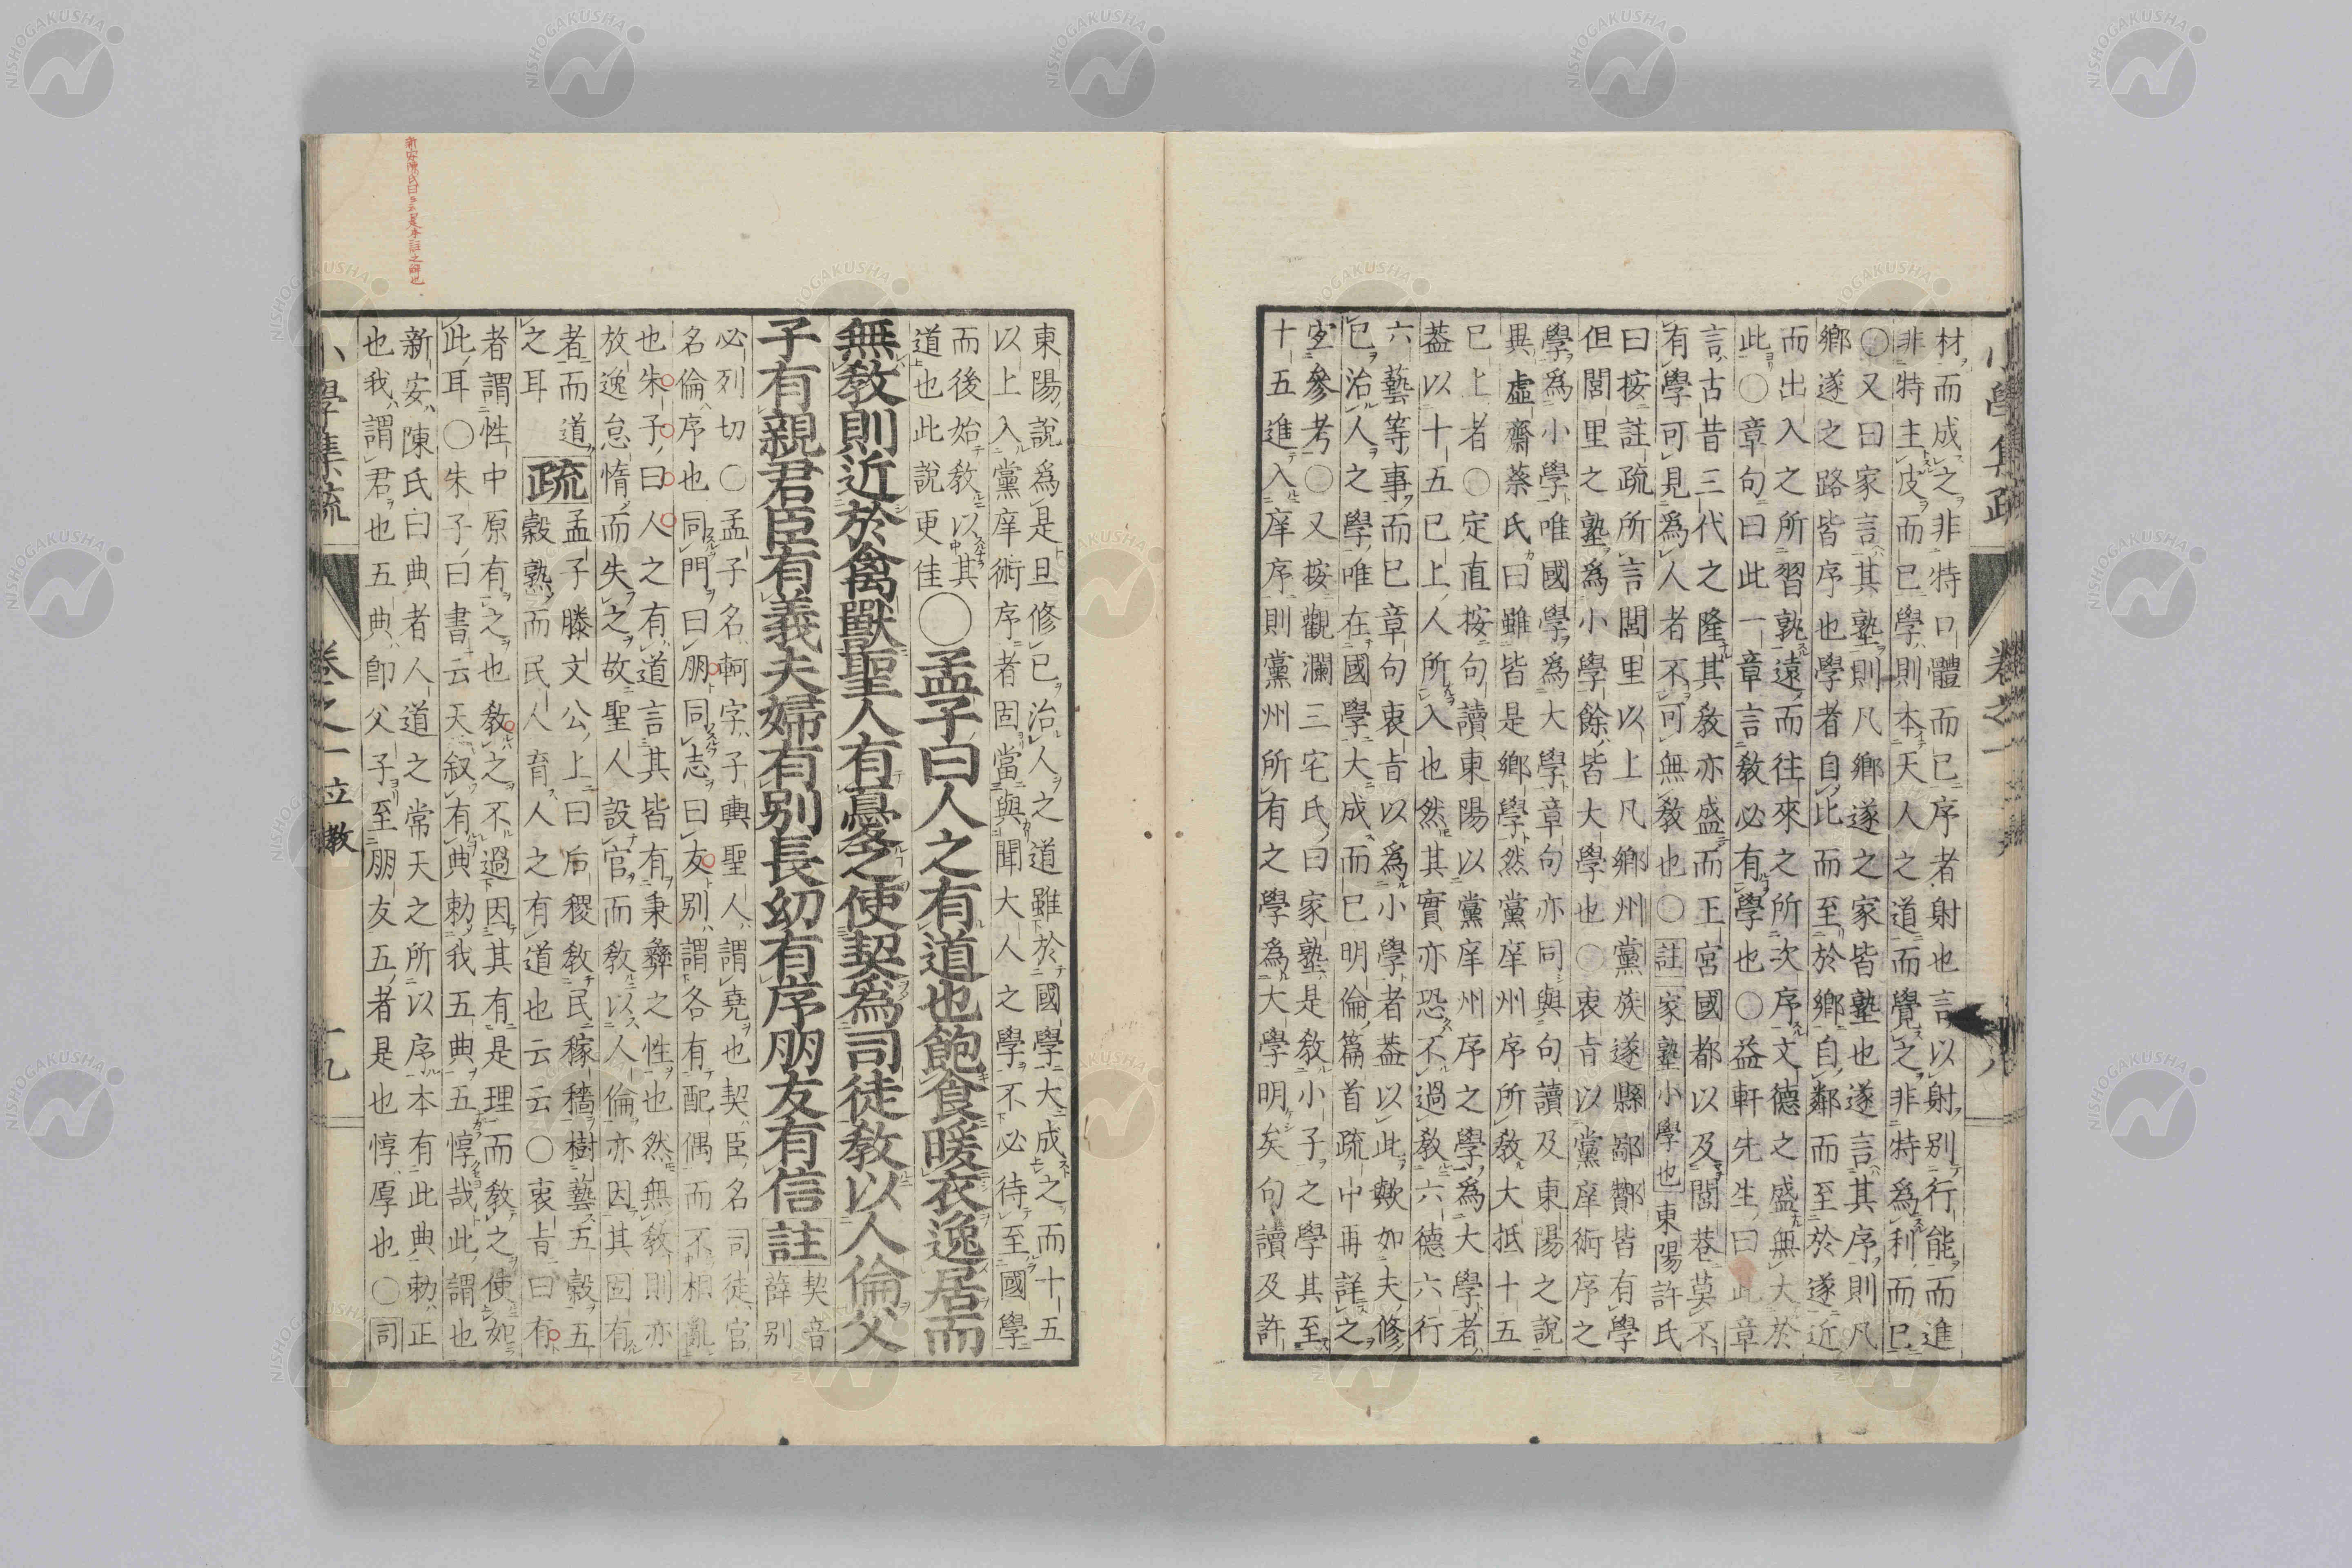 材而成之非特口體而已序者射也言以射別行能而進
非特主皮而已學則本天人之道而覺之非特為利而已
〇又曰家言其塾則凡鄉遂之家皆塾也遂言其序則凡
鄉遂之路皆序也學者自此而至於鄉自鄰而至於遂近
而出入之所習孰遠而往來之所次序文德之盛無大於
此〇章句曰此一章言教必有學也〇益軒先生曰此章
言古昔三代之隆其教亦盛而王宮國都以及閭巷莫不
有學可見為人者不可無教也〇註家塾小學也東陽許氏
曰按註疏所言閭里以上凡鄉州黨族遂縣鄙酇皆有學
但閭里之塾為小學餘皆大學也〇衷旨以黨庠術序之
學為小學唯國學為大學章句亦同與句讀及東陽之說
異虛齋蔡氏曰雖皆是鄉學然黨庠州序所教大抵十五
已上者〇定直按句讀東陽以黨庠州序之學為大學者
蓋以十五已上人所入也然其實亦恐不過教六德六行
六藝等事而已章句衷旨以為小學者蓋以此歟如夫修
已治人之學唯在國學大成而已明倫篇首疏中再詳之
宜參考〇又按觀瀾三宅氏曰家塾是教小子之學其至
十五進入庠序則黨州所有之學為大學明矣句讀及許
小學集疏 卷之一
東陽說為是且修已治人之道雖於國學大成之而十五
以上入黨庠術序者固當與聞大人之學不必待至國學
而後始教以其
道也此說更佳
〇孟子曰人之有道也飽食暖衣逸居而
無教則近於禽獸聖人有憂之使契為司徒教以人倫父
子有親君臣有義夫婦有別長幼有序朋友有信註契音
薛別
必列切〇孟子名軻字子輿聖人謂堯也契臣名司徒官
名倫序也同門曰朋同志曰友別謂各有配偶而不相亂
也朱子曰人之有道言其皆有秉彝之性也然無教則亦
放逸怠惰而失之故聖人設官而教以人倫亦因其固有
者而道
之耳
疏孟子滕文公上曰后稷教民稼穡樹藝五穀五
穀熟而民人育人之有道也云云〇衷旨曰有
者謂性中原有之也教之不過因其有是理而教之使如
此耳〇朱子曰書云天叙有典勅我五典五惇哉此謂也
新安陳氏曰典者人道之常天之所以序本有此典勅正
也我謂君也五典卽父子至朋友五者是也惇厚也〇同
小學集疏 卷之一 立教 十九